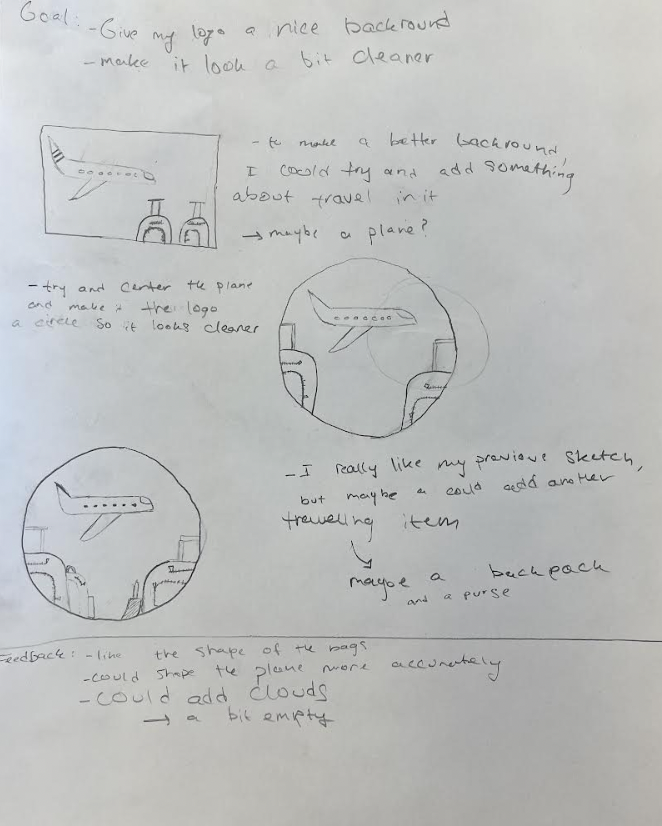 Goal: -Give my logo a nice backround
-make it look a bit cleaner
- to make a better backround,
I could try and add something
about travel in it
→ maybe a plane?
- try and center the plane
and make the logo
a circle so it looks cleaner
- I really like my previous sketch,
but maybe a could add another
traveling item
maybe a backpack
and a purse
Feedback: - like the shape of the bags
-could shape the plane more accurately
- could add clouds
→ a bit empty